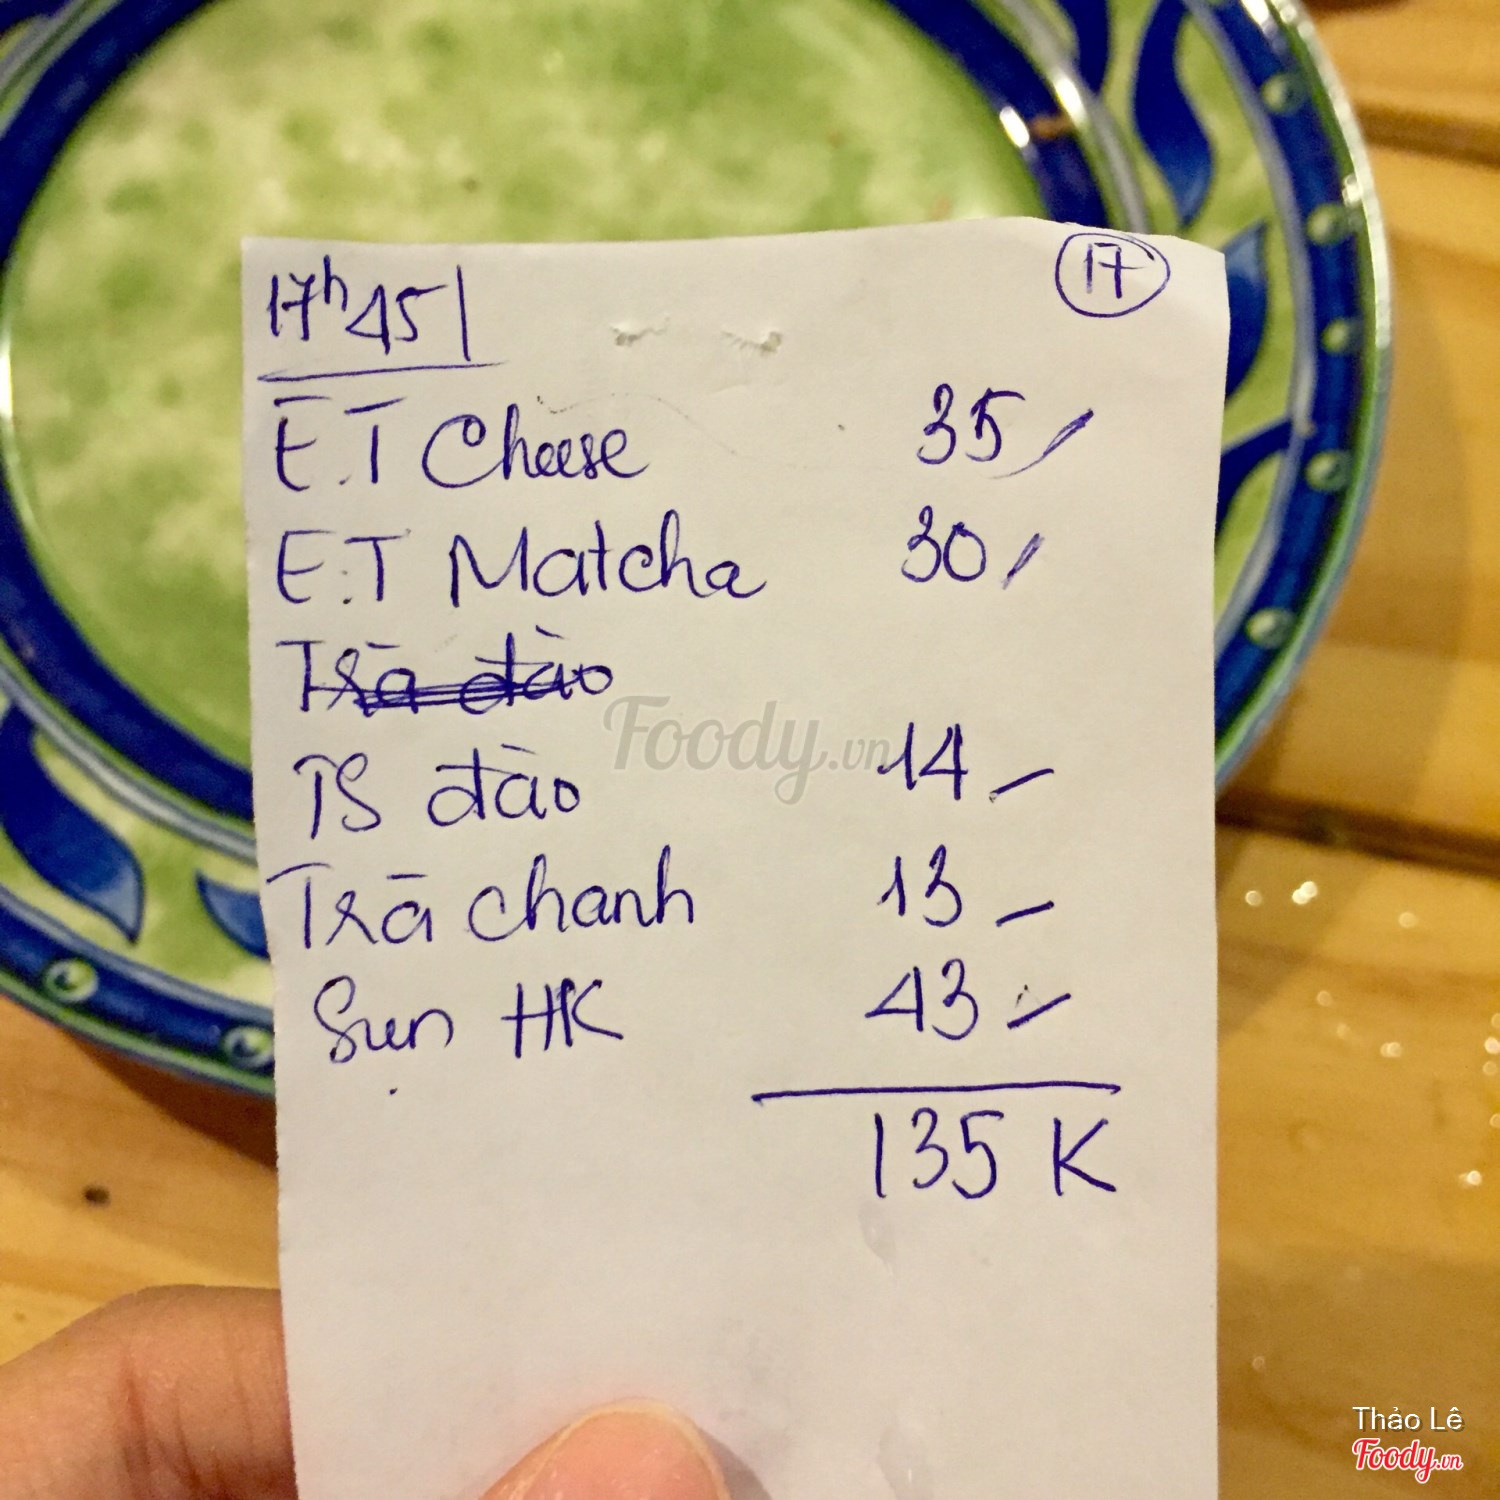 17h45
17
E.T Cheese 35
E.T Matcha 30
Trà đào
TS đào 14
Trà chanh 13
Sụn HK 43
135 K
Foody.vn
Thảo Lê
Foody.vn